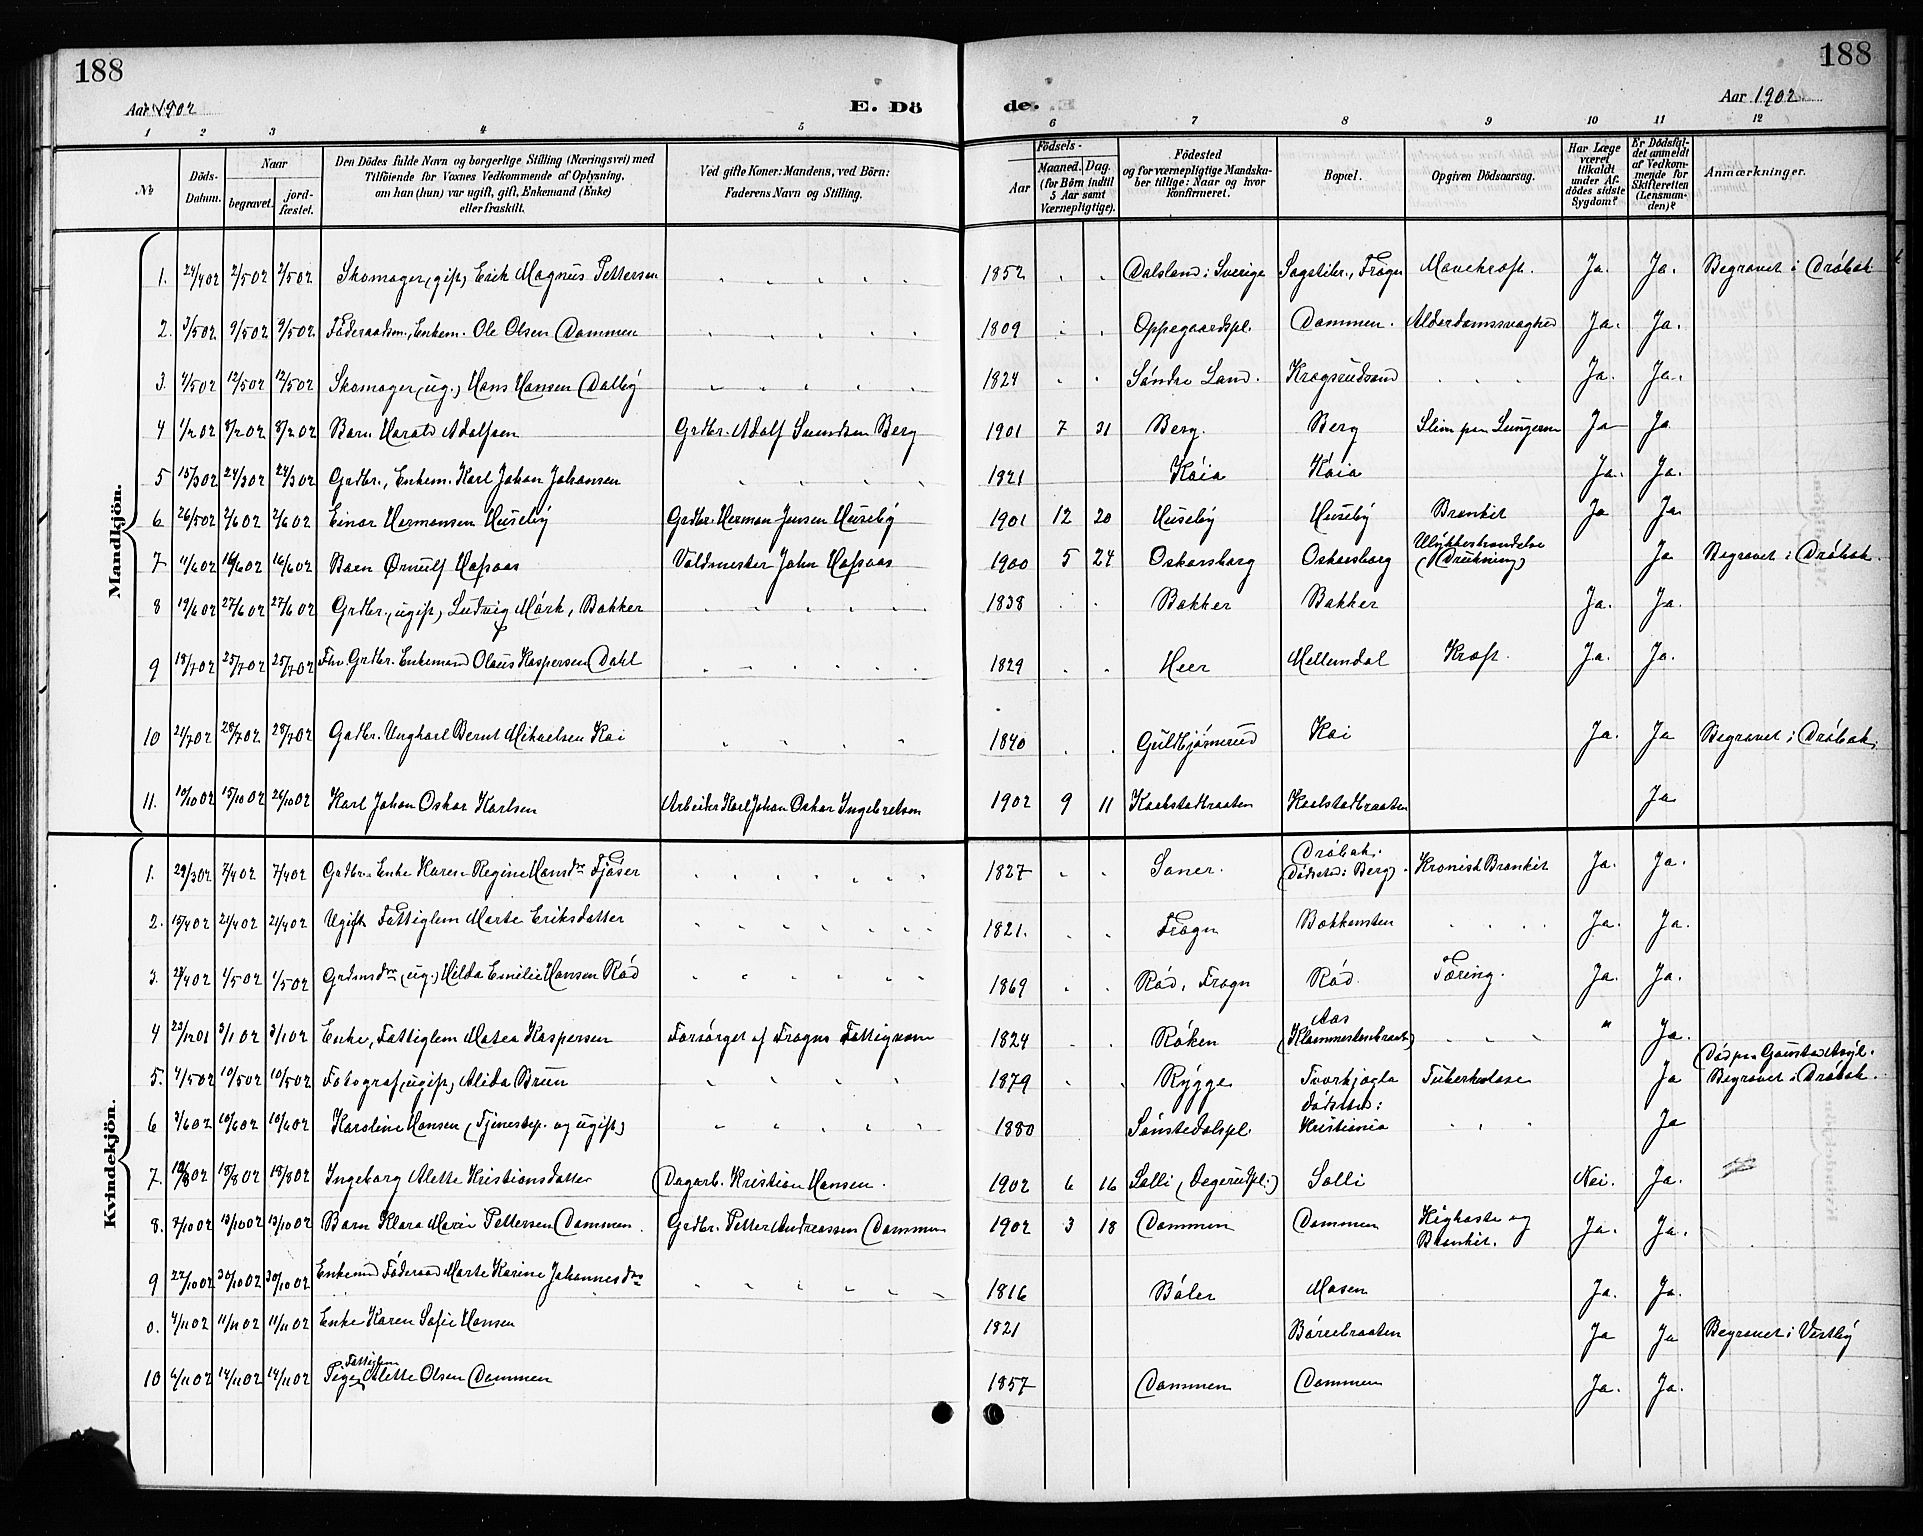 188
188
Aar 1902
E. Dö
de.
Aar 1902
1 2 3 4 5 6 7 8 9 10 11 12
No
Döds-Datum.
Naar
begravet.
jord-fæstet.
Den Dödes fulde Navn og borgerlige Stilling (Næringsvei) med
Tilföiende for Voxnes Vedkommende af Oplysning,
om han (hun) var ugift, gift, Enkemand (Enke)
eller fraskilt.
Ved gifte Koner: Mandens, ved Börn:
Faderens Navn og Stilling.
Födsels-
Aar
Maaned. Dag.
(for Börn indtil
5 Aar samt
Værnepligtige).
Födested
og for værnepligtige Mandskaber tillige: Naar og hvor
konfirmeret.
Bopæl.
Opgiven Dödsaarsag.
Har Læge været tilkaldt under Afdödes sidste Sygdom?
Er Dödsfaldet anmeldt af Vedkommende for Skifteretten (Lensmanden)?
Anmærkninger.
Mandkjön.
1. 24/4 02 2/5 02 2/5 02 Skomager, gift, Erik Magnus Pettersen 1852 Dalsland i Sverige Sagstibr., Frogn Mavekræft. Ja. Ja. Begravet i Dröbak
2. 3/5 02 9/5 02 9/5 02 Föderaadsm., Enkem. Ole Olsen Dammen 1809 Oppegaardspl. Dammen. Alderdomssvaghed Ja. Ja.
3. 4/5 02 12/5 02 12/5 02 Skomager (ug.) Hans Hansen Dalby 1824 Söndre Land. Kragsrudvand Ja. Ja.
4 1/2 02 8/2 02 8/2 02 Barn Harald Adolfsen Grdbr. Adolf Svendsen Berg 1901 7 31 Berg. Berg Slim paa Lungerne Ja Ja
5 15/3 02 24/3 02 24/3 02 Grdbr., Enkem. Karl Johan Johansen 1821 Kaia Kaia Ja. Ja.
6 26/5 02 2/6 02 2/6 02 Einar Hermansen Huseby Grdbr. Herman Jensen Huseby 1901 12 20 Huseby Huseby Bronkit Ja Ja
7 11/6 02 16/6 02 16/6 02 Barn Ørnulf Hafsaas Voldmester John Hafsaas 1900 5 24 Oskarsborg Oskarsborg Ulykkeshændelse (Drukning) Ja Begravet i Dröbak.
8 19/6 02 27/6 02 27/6 02 Grdbr., ugift, Ludvig Mörk, Bakker 1838 Bakker Bakker Ja. Ja.
9 18/7 02 25/7 02 25/7 02 Fhv. Grdbr. Enkemand Olaus Kaspersen Dahl 1829 Heer Mellemdal Kræft. Ja. Ja.
10 21/7 02 28/7 02 28/7 02 Grdbr. Ungkarl Bernt Mikaelsen Kai 1840 Kai Ja. Ja Begravet i Dröbak.
11. 10/10 02 15/10 02 26/10 02 Karl Johan Oskar Karlsen Arbeider Karl Johan Oskar Ingebretsen 1902 9 11 Kaalstadbraaten Kaalstadbraaten Ja
Kvindekjön.
1. 29/3 02 7/4 02 7/4 02 Grdbr. Enke Karen Regine Hansdtr Fjöser 1827 Saner. Dröbak. (Dödsted: Berg). Kronisk Bronkit Ja. Ja.
2. 15/4 02 21/4 02 21/4 02 Ugift Fattiglem Marte Eriksdatter 1821. Frogn Bakkensten Ja. Ja.
3. 24/4 02 1/5 02 1/5 02 Grdmsdtr (ug.) Hilda Emilie Hansen Röd 1869 Röd, Frogn Röd. Tæring. Ja. Ja.
4 23/12 01 3/1 02 3/1 02 Enke, Fattiglem Matea Kaspersen Forsörget af Frogns Fattigvæsen 1824 Röken Aas " Ja.
5. 4/5 02 10/5 02 10/5 02 Fotograf, ugift, Alida Brun 1879 Rygge Tvorkjøgla Tuberkulose Ja Död paa Gaustad Asyl. Begravet i Dröbak.
6 3/6 02 10/6 02 10/6 02 Karoline Hansen (Tjenestep. og ugift) 1880 Sönstedalspl. Dödsted: Kristiania Ja
7. 12/8 02 18/8 02 18/8 02 Ingeborg Alette Kristiansdatter Dagarb. Kristian Hansen. 1902 6 16 Solli (Degerudpl.) Solli Nei. Ja.
8. 7/10 02 13/10 02 13/10 02 Barn Klara Marie Pettersen Dammen. Grdbr. Petter Andreassen Dammen 1902 3 18 Dammen Dammen Kighoste og Bronkit. Ja. Ja.
9 22/10 02 30/10 02 30/10 02 Föderaad Marte Karine Johannesdtr 1816 Böler Mosen Ja. Ja.
0. 4/11 02 11/11 02 11/11 02 Enke Karen Sofie Hansen 1821 Börrebraaten Ja Ja Begravet i Vestby
10 6/11 02 14/11 02 14/11 02 Pige Fattiglem Alette Olsen Dammen 1857 Dammen Dammen Ja. Ja.